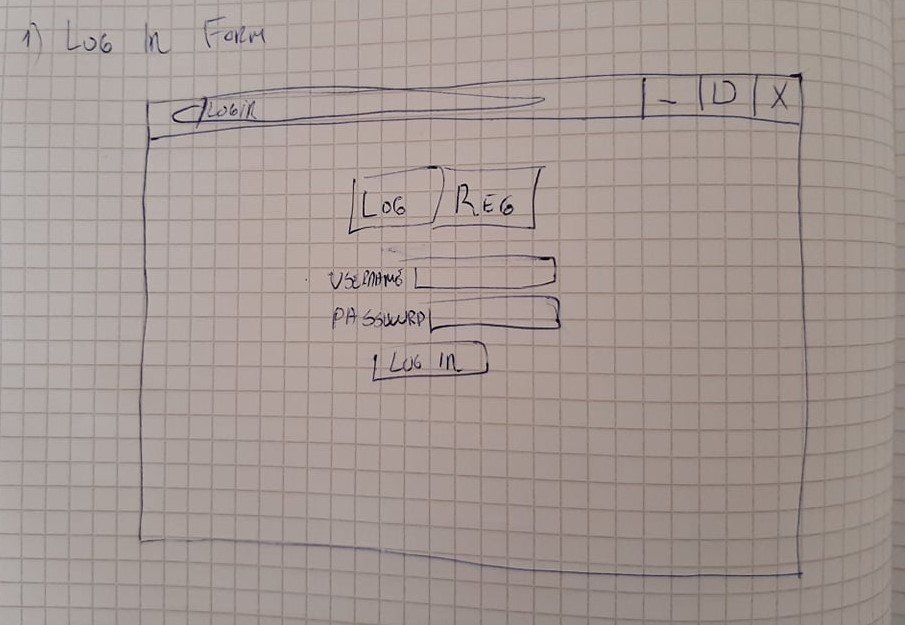 1) LOG IN FORM
LOGIN
_ X
LOG REG
USERNAME
PASSWORD
LOG IN